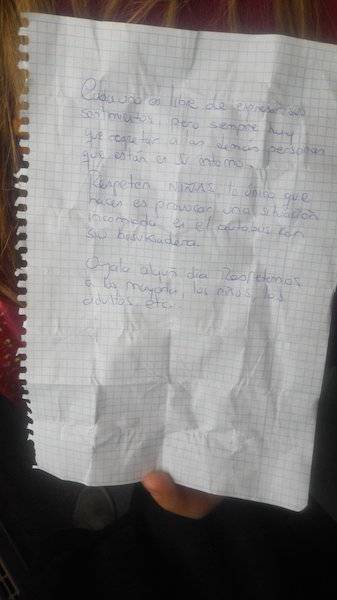 Cada uno es libre de expresar sus
sentimientos pero siempre hay
que respetar a las demas personas
que están en lo mismo.
Respeten NIÑAS lo único que
haceis es provocar una situación
incomoda en el autobus con
su besukiadera.
Ojala algun dia Respetemos
a la mayoria, los niños, los
adultos etc..